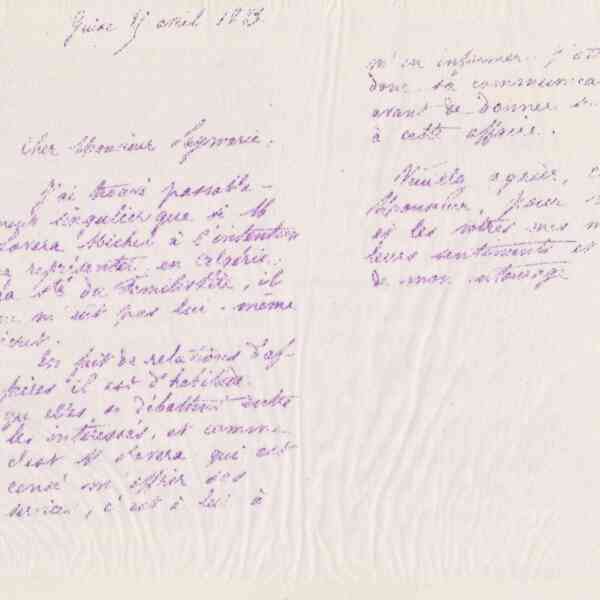 Guise avril
Cher Monsieur Leymarie,
J'ai trouvé passable-
singulier que si M
Lovera Michel à l'intention
représenter en Algérie
la Sté du Familistère, il
ne m'eût pas lui-même
écrit.
En fait de relations d'af-
faires il est d'habitude
que elles se débattent entre
les intéressés, et comme
c'est M Lovera qui est
censé offrir ses
services, c'est à lui à
m'en informer. J'
donc sa
avant de donner
à cette affaire.
Veuillez agréer,
Monsieur, pour
et les vôtres mes
leurs sentiments et
de mon entourage